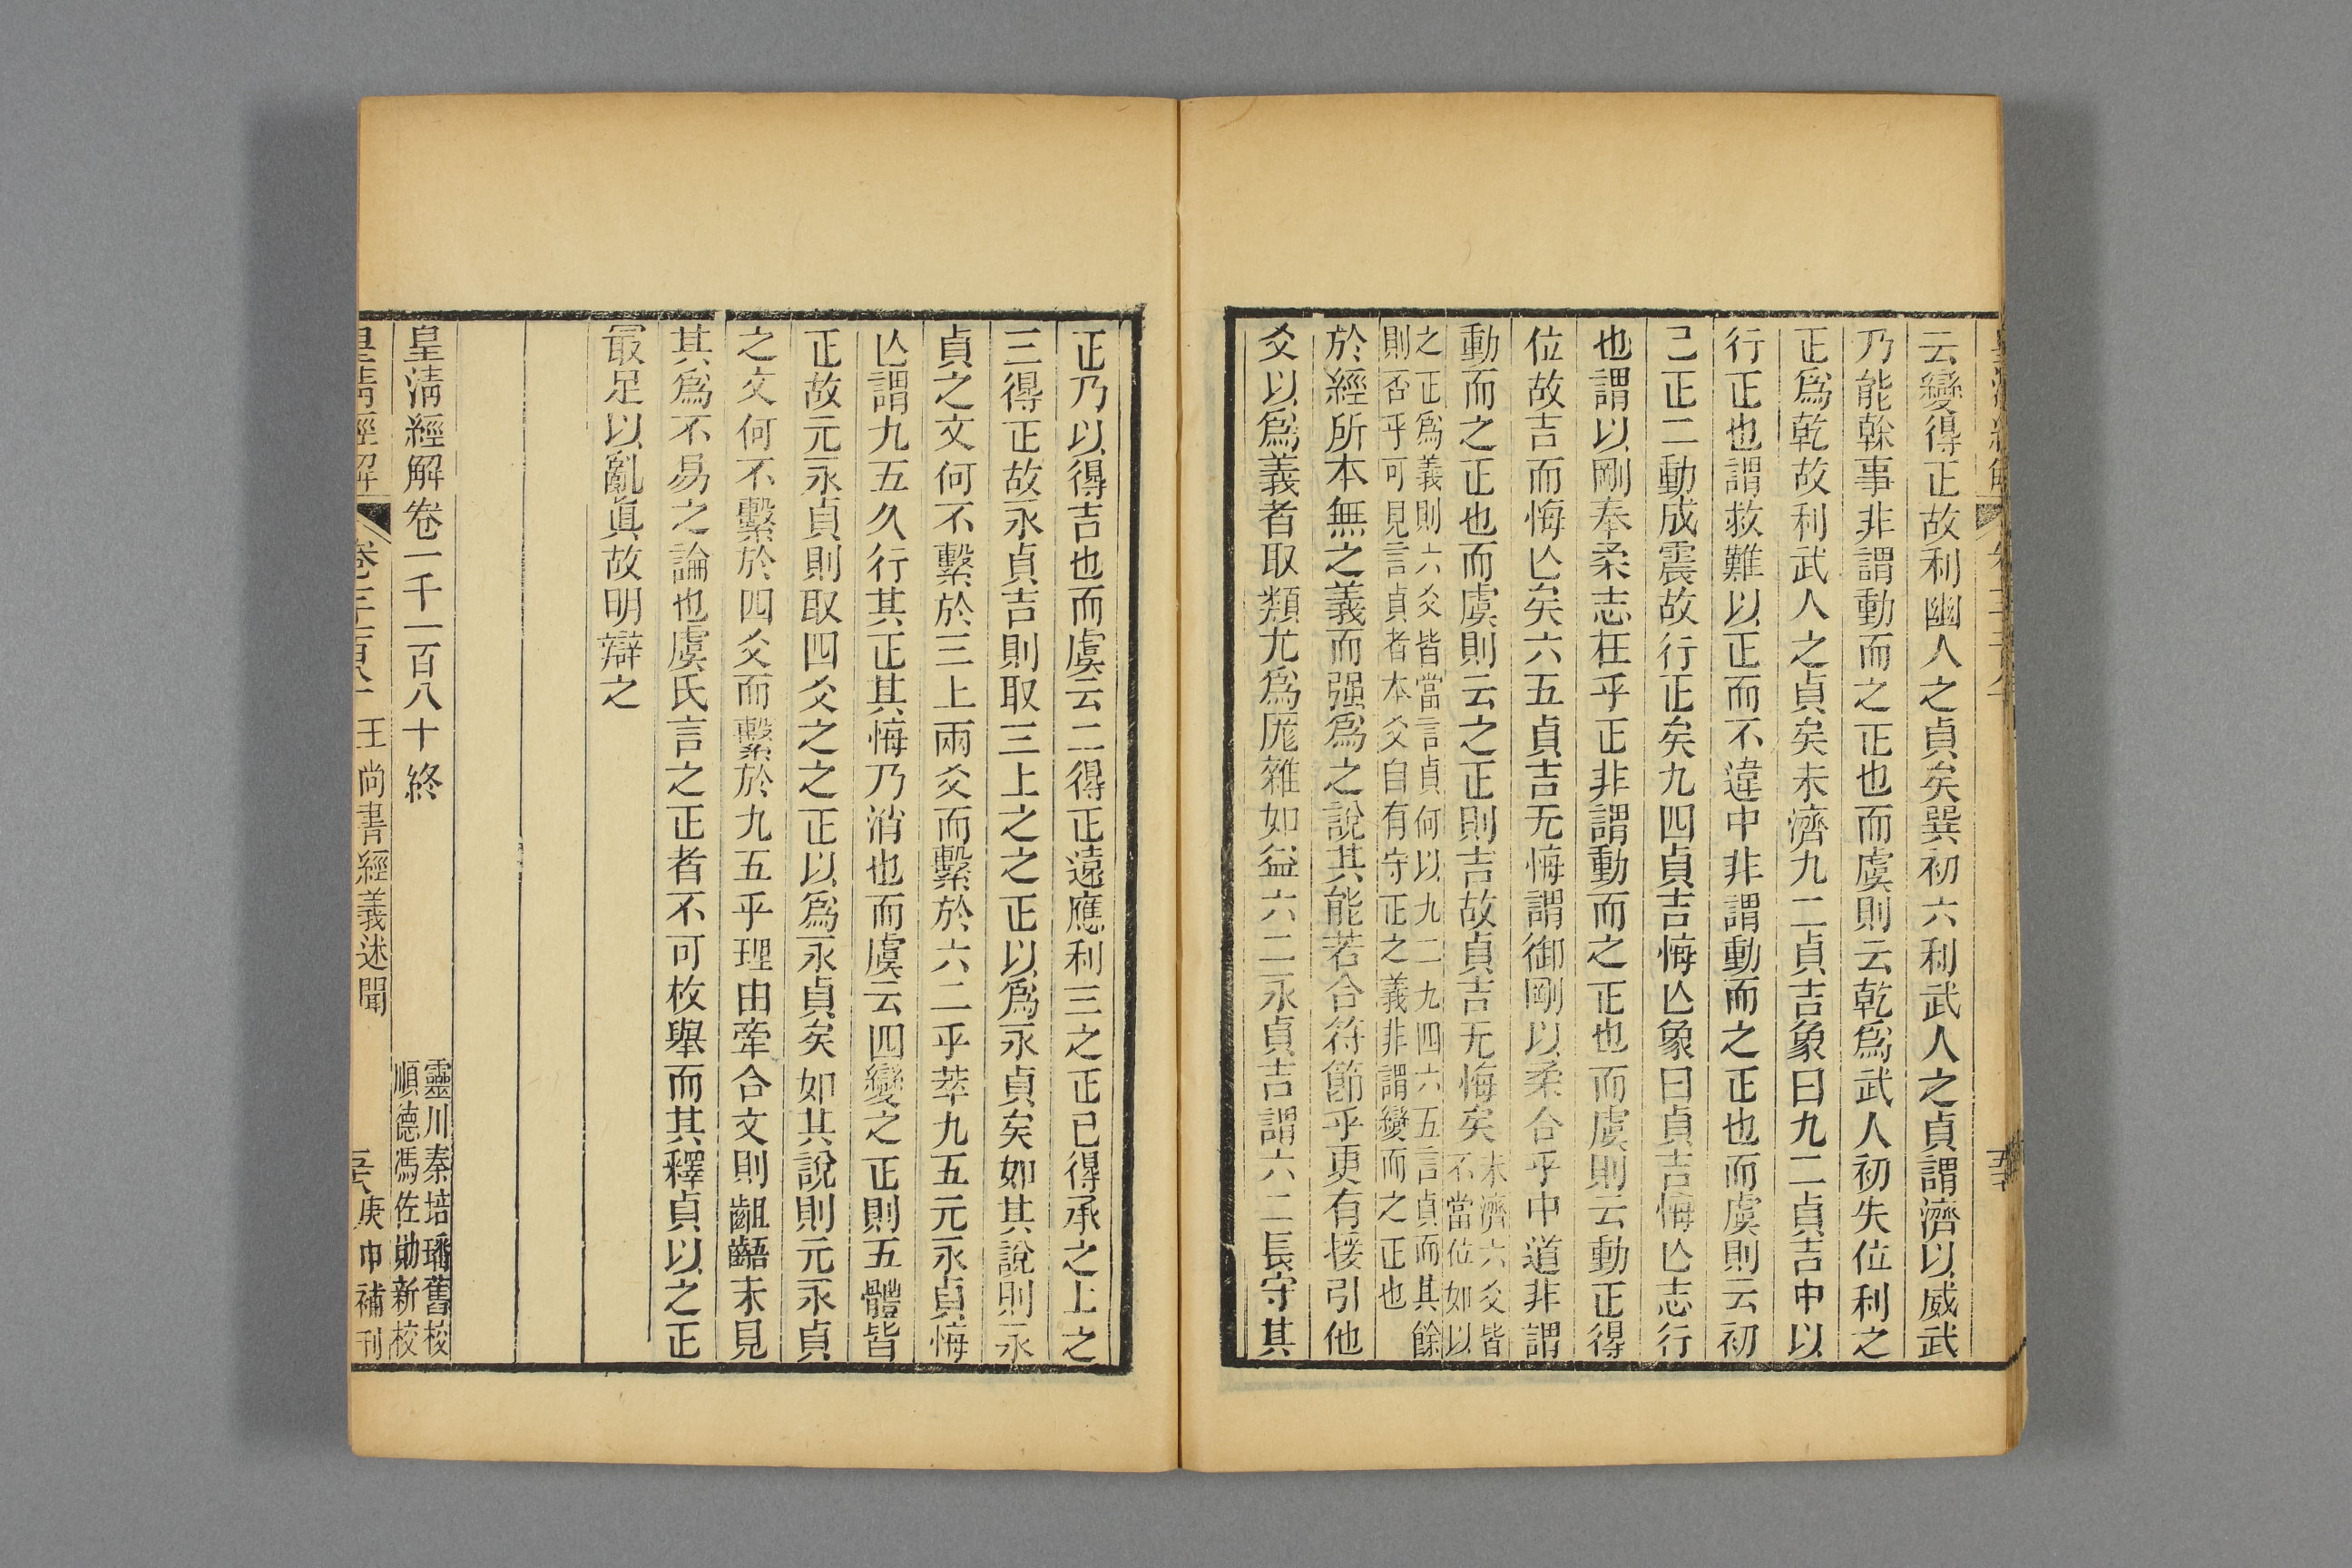 云變得正故利幽人之貞矣巽初六利武人之貞謂濟以威武
乃能榦事非謂動而之正也而虞則云乾爲武人初失位利之
正爲乾故利武人之貞矣未濟九二貞吉象曰九二貞吉中以
行正也謂救難以正而不違中非謂動而之正也而虞則云初
己正二動成震故行正矣九四貞吉悔亾象曰貞吉悔亾志行
也謂以剛奉柔志在乎正非謂動而之正也而虞則云動正得
位故吉而悔亾矣六五貞吉无悔謂御剛以柔合乎中道非謂
動而之正也而虞則云之正則吉故貞吉无悔矣
未濟六爻皆
不當位如以
之正爲義則六爻皆當言貞何以九二九四六五言貞而其餘
則否乎可見言貞者本爻自有守正之義非謂變而之正也
於經所本無之義而强爲之說其能若合符節乎更有援引他
爻以爲義者取類尤爲厖雜如益六二永貞吉謂六二長守其
正乃以得吉也而虞云二得正遠應利三之正已得承之上之
三得正故永貞吉則取三上之之正以爲永貞矣如其說則永
貞之文何不繫於三上兩爻而繫於六二乎萃九五元永貞悔
亾謂九五久行其正其悔乃消也而虞云四變之正則五體皆
正故元永貞則取四爻之之正以爲永貞矣如其說則元永貞
之文何不繫於四爻而繫於九五乎理由牽合文則齟齬未見
其爲不易之論也虞氏言之正者不可枚舉而其釋貞以之正
最足以亂眞故明辯之
皇淸經解卷一千一百八十終
靈川秦培璠舊校
順德馮佐勛新校
皇淸經解
王尚書經義述聞
庚申補刊